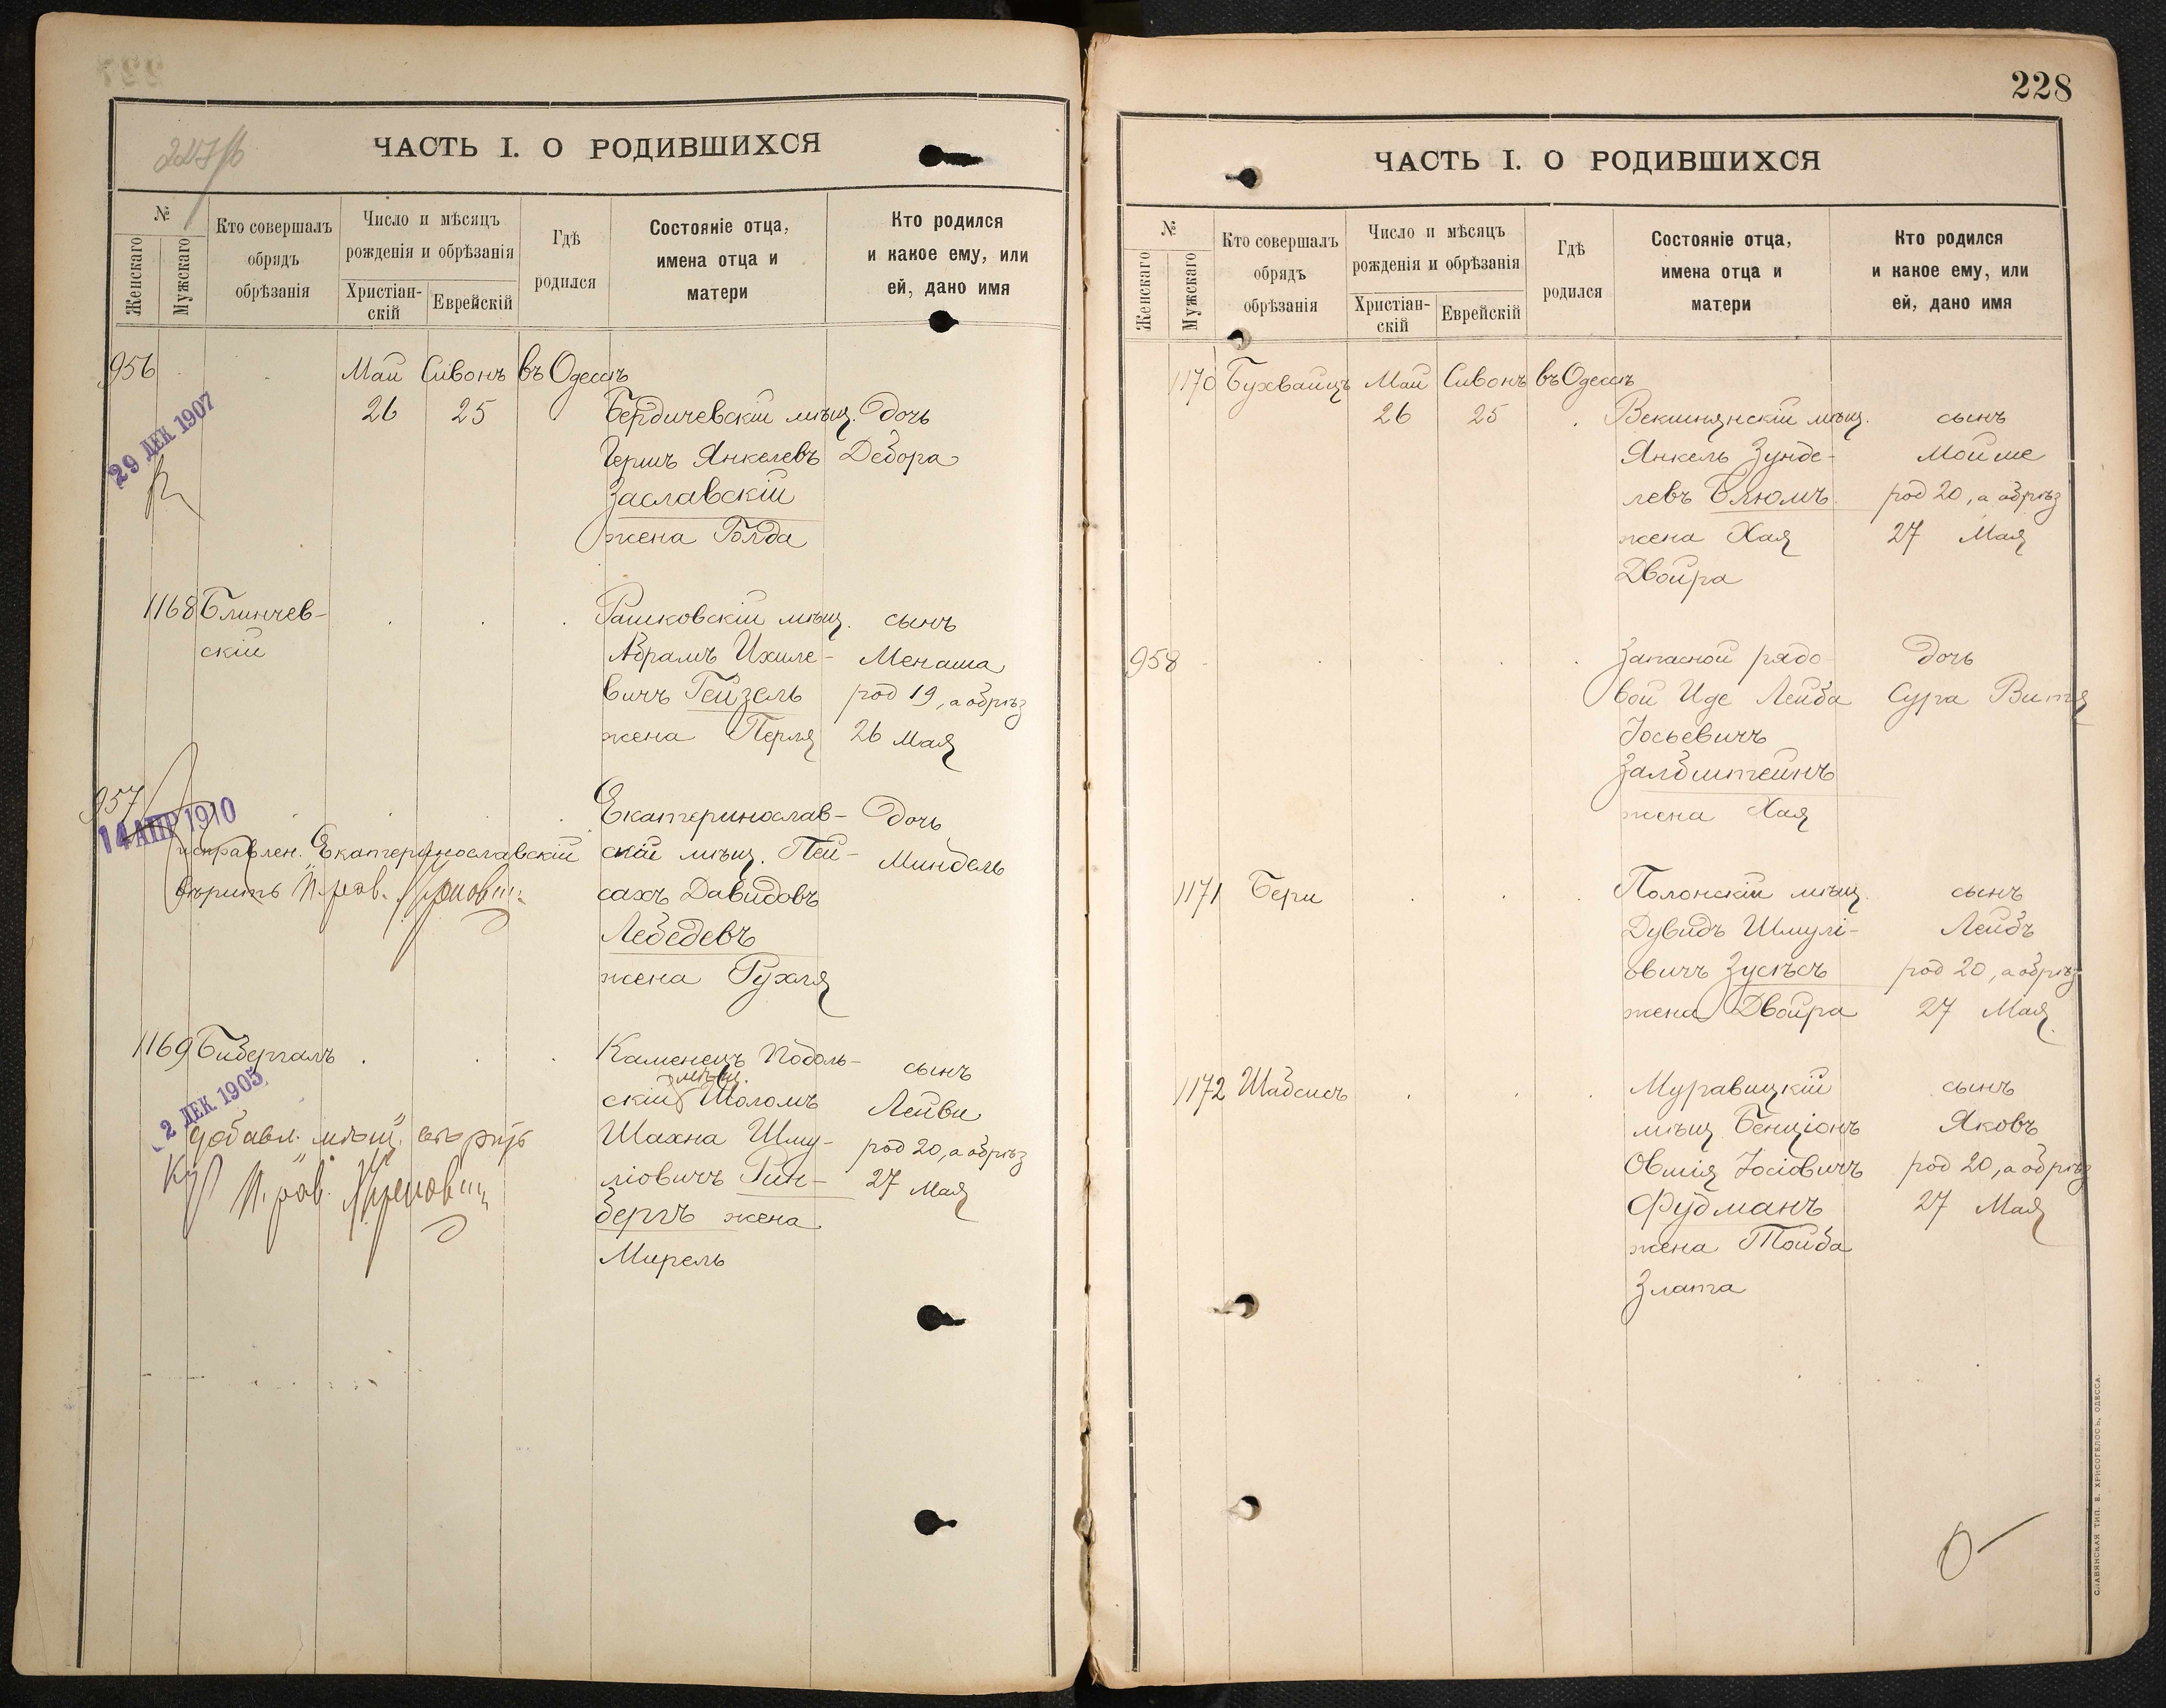 227/б
ЧАСТЬ I. О РОДИВШИХСЯ
№
Женскаго
Мужскаго
Кто совершалъ
обрядъ
обрѣзанія
Число и мѣсяцъ
рожденія и обрѣзанія
Христіан-
скій
Еврейскій
Гдѣ
родился
Состояніе отца,
имена отца и
матери
Кто родился
и какое ему, или
ей, дано имя
956
Май Сивонъ въ Одессѣ
26 25 Бердичевскій мѣщ. дочь
29 ДЕК 1907
Гершъ Янкелевъ Дебора
Заславскій
жена Голда
1168 Блинчев- Рашковскій мѣщ. сынъ
скій
Абрамъ Ихиле- Менаша
вичъ Гейзель род 19, а обрѣз
жена Перля 26 Мая
957
14 АПР 1910
Екатеринослав- дочь
исправлен. Екатеринославскій
скій мѣщ. Пей- Миндель
вѣрить П. рав.
сахъ Давидовъ
Лебедевъ
жена Рухля
1169 Бибергалъ Каменецъ Подоль- сынъ
мѣщ.
скій Шоломъ Лейви
2 ДЕК 1905
добавл. мѣщ.
Шахна Шму- род 20, а обрѣз
П. рав.
ліовичъ Рин- 27 Мая
бергъ жена
Мирель
228
ЧАСТЬ I. О РОДИВШИХСЯ
№
Женскаго
Мужскаго
Кто совершалъ
обрядъ
обрѣзанія
Число и мѣсяцъ
рожденія и обрѣзанія
Христіан-
скій
Еврейскій
Гдѣ
родился
Состояніе отца,
имена отца и
матери
Кто родился
и какое ему, или
ей, дано имя
1170 Бухвайцъ Май Сивонъ въ Одессѣ
26 25 Векшнянскій мѣщ. сынъ
Янкель Зунде- Мойше
левъ Блюмъ род 20, а обрѣз
жена Хая 27 Мая
Двойра
958 Запасной рядо- дочь
вой Иде Лейба Сура Витя
Іосьевичъ
Залбштейнъ
жена Хая
1171 Бери Полонскій мѣщ. сынъ
Дувидъ Шмулі- Лейбъ
овичъ Зусьсъ род 20, а обрѣз
жена Двойра 27 Мая
1172 Шабсисъ Муравицкій сынъ
мѣщ Бенціонъ Яковъ
Овшія Іосіовичъ род 20, а обрѣз
Фудманъ 27 Мая
жена Тойба
Злата
СЛАВЯНСКАЯ ТИП. Е. ХРИСОГЕЛОСЪ, ОДЕССА.